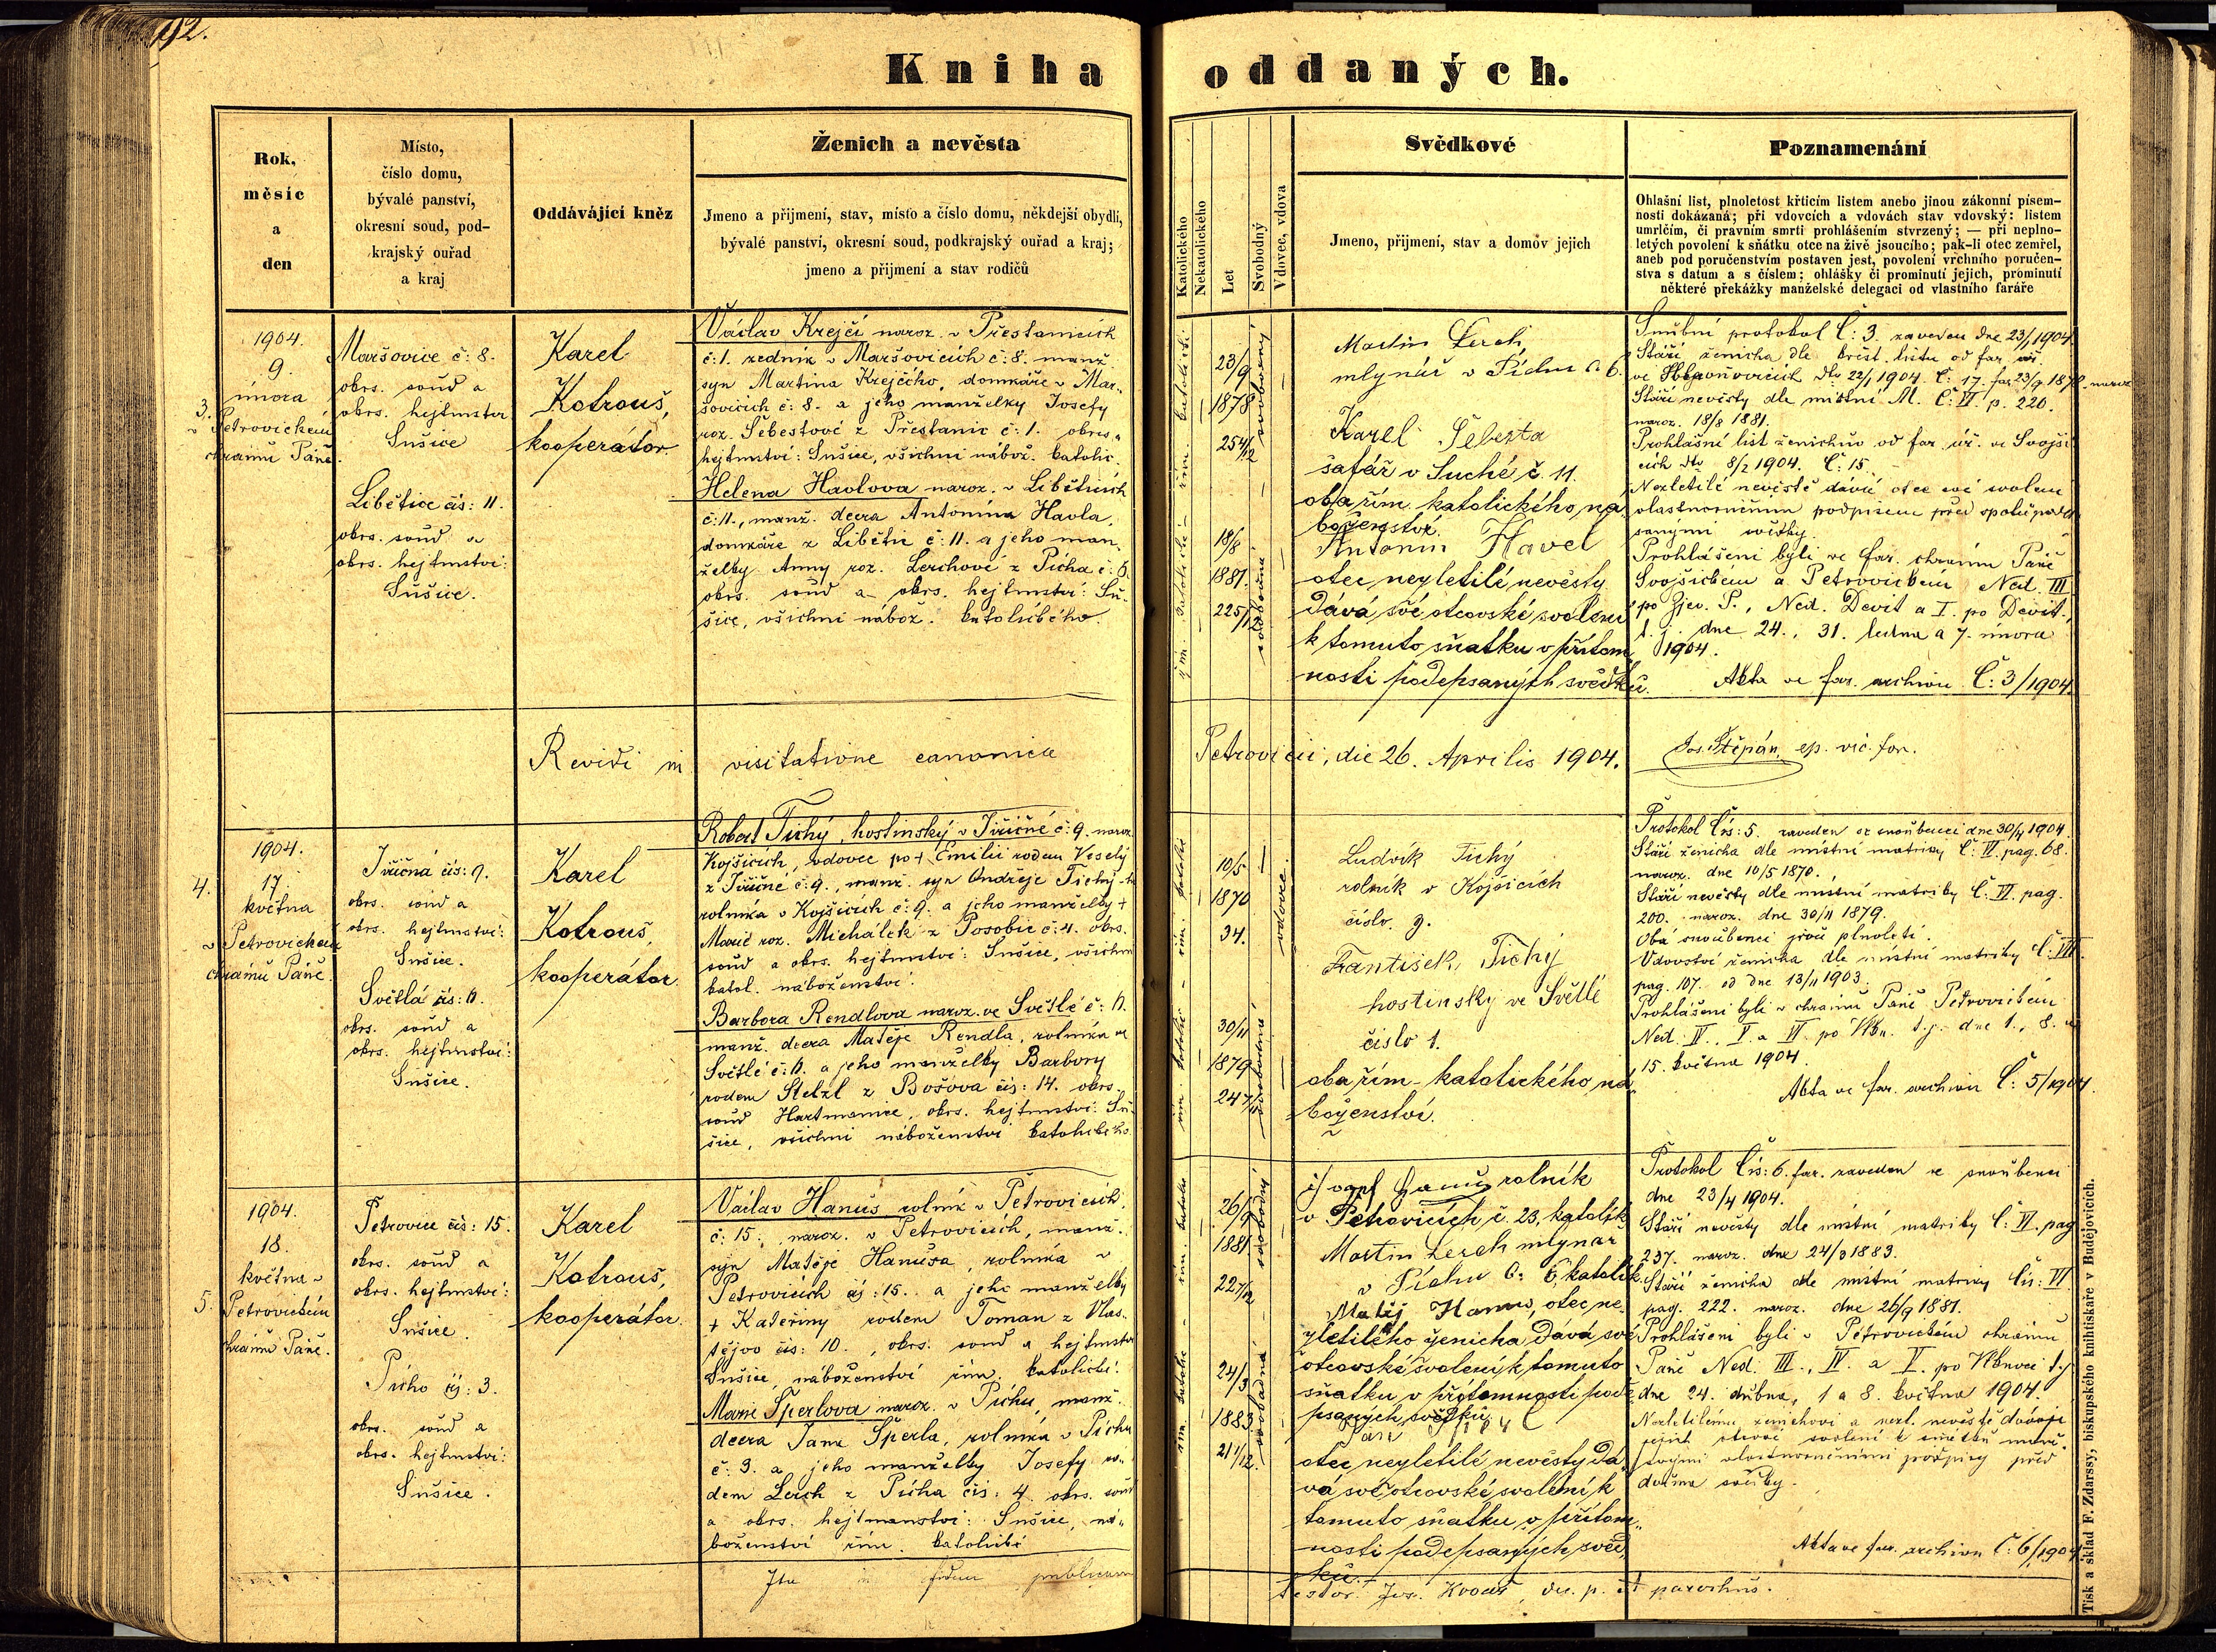 192.
Kniha oddaných.
Rok,
měsíc
a
den
Místo,
číslo domu,
bývalé panství,
okresní soud, pod-
krajský ouřad
a kraj
Oddávající kněz
Ženich a nevěsta
Jmeno a přijmení, stav, místo a číslo domu, někdejší obydlí,
bývalé panství, okresní soud, podkrajský ouřad a kraj;
jmeno a přijmení a stav rodičů
Katolického
Nekatolického
Let
Svobodný
Vdovec, vdova
Svědkové
Jmeno, přijmení, stav a domov jejich
Poznamenání
Ohlašní list, plnoletost křticím listem anebo jinou zákonní písem-
nosti dokázaná; při vdovcích a vdovách stav vdovský: listem
umrlčím, či právním smrti prohlášením stvrzený; — při neplno-
letých povolení k sňátku otce na živě jsoucího; pak-li otec zemřel,
aneb pod poručenstvím postaven jest, povolení vrchního poručen-
stva s datum a s číslem; ohlášky či prominutí jejich, prominutí
některé překážky manželské delegací od vlastního faráře
3.
1904.
9.
února
v Petrovickém
chrámu Páně.
Maršovice č: 8.
okrs. soud a
okrs. hejtmstvr
Sušice
Libětice čís: 11.
okrs. soud a
okrs. hejtmstvi:
Sušice.
Karel
Kotrouš,
kooperátor.
Václav Krejčí naroz. v Přestanicích
č: 1. zedník v Maršovicích č: 8. manž.
syn Martina Krejčího, domkáře v Mar-
šovicích č: 8. a jeho manželky Josefy
roz. Šebestové z Přestanic č: 1. okres a
hejtmství: Sušice, všichni nábož. katolic.
Helena Havlova naroz. v Libětících
č: 11., manž. dcera Antonína Havla,
domkáře z Libětic č: 11. a jeho man-
želky Anny roz. Lerchové z Pícha č: 6.
okrs. soud a okrs. hejtmství: Su-
šice, všichni nábož. katolického.
23/9
1878
25 4/12
svobodný
18/8
1881.
22 5/12
svobodná
Martin Lerch,
mlynář v Píchu č. 6.
Karel Šebesta
šafář v Suché č 11.
oba řím. katolického ná-
boženství.
Antonín Havel
otec nezletilé nevěsty
dává své otcovské svolení
k tomuto sňatku v přítom-
nosti podepsaných svědků.
Snubní protokol Č: 3. zaveden dne 23/1 1904.
Stáří ženicha dle křest. listu od far. úř.
Stáří nevěsty dle místní M. Č: VI p. 220.
naroz. 18/8 1881.
Prohlašní list ženichův od far. úř. ve Svojši-
cích dto 8/2 1904. Č: 15.
Nezletilé nevěstě dává otec své svolení
vlastnoručním podpisem před spolupode-
sanými svědky.
Prohlášeni byli ve far. chrámu Páně
Svojšickém a Petrovickém Ned. III
po Zjev. P., Ned. Devít. a I. po Devít.,
t. j. dne 24., 31. ledna a 7. února
1904.
Akta ve far. archivu Č: 3/1904.
Revidi in visitatione canonica
Petrovicii, die 26. Aprilis 1904.
Jos. Štěpán, ep. vic. for.
4.
1904.
17.
května
v Petrovickém
chrámu Páně.
Jiřičná čís: 9.
okrs. soud a
okrs. hejtmství:
Sušice.
Světlá čís: 6.
okrs. soud a
okrs. hejtmství:
Sušice.
Karel
Kotrouš,
kooperátor
Robert Tichý, hostinský v Jiřičné č: 9. naroz.
Kojšicích, vdovec po + Emilii rodem Veselý
z Jiřičné č: 9., manž. syn Ondřeje Tichý-ho
rolníka v Kojšicích č: 9. a jeho manželky +
Marie roz. Michálek z Posobic č: 4. okrs.
soud a okrs. hejtmství: Sušice, všichni
katol. náboženství.
Barbora Rendlova naroz. ve Světlé č: 6.
manž. dcera Matěje Rendla, rolníka ve
Světlé č: 6. a jeho manželky Barbory
rodem Stelzl z Bošova čís: 14. okrs.
soud Hartmanice, okrs. hejtmství: Su-
šice, všichni náboženství katolického
10/5
1870
34.
vdovec.
30/11
1879
svobodná
Ludvík Tichý
rolník v Kojšicích
číslo. 9.
František Tichý
hostinský ve Světlé
číslo 1.
oba řím-katolického ná-
boženství.
Protokol Čís: 5. zaveden se snoubenci dne 30/4 1904.
Stáří ženicha dle místní matriky Č: IV. pag. 68.
naroz. dne 10/5 1870.
Stáří nevěsty dle místní matriky Č: VI. pag.
200. naroz. dne 30/11 1879.
Oba snoubenci jsou plnoletí.
Vdovství ženicha dle místní matriky Č: VII.
pag. 107. od dne 13/11 1903.
Prohlášeni byli v chrámu Páně Petrovickém
Ned. IV., V. a VI po Vkn. t. j. dne 1., 8. a
15. května 1904.
Akta ve far. archivu Č: 5/1904.
5.
1904.
18.
května v
Petrovickém
chrámu Páně.
Petrovice čís: 15.
okrs. soud a
okrs. hejtmství:
Sušice.
Pícho čís: 3.
okrs. soud a
okrs. hejtmství:
Sušice.
Karel
Kotrouš,
kooperátor.
Václav Hanuš rolník v Petrovicích,
č: 15., naroz. v Petrovicích, manž.
syn Matěje Hanuša, rolníka v
Petrovicích čís: 15. a jeho manželky
+ Kateřiny rodem Toman z Vlas-
tějov čís: 10., okrs. soud a hejtmství
Sušice, náboženství řím. katolické.
Marie Šperlova naroz. v Píchu, manž.
dcera Jana Šperla, rolníka v Píchu
č: 3. a jeho manželky Josefy ro-
dem Lerch z Pícha čís: 4. okrs. soud
a okrs. hejtmanství: Sušice, ná-
boženství řím. katolické
26/9
1881
22 7/12
svobodný
24/3
1883.
21 1/12.
svobodná
Josef Hanuš rolník
v Petrovicích, č. 23, katolík
Martin Lerch mlynář
v Píchu č: 6 katolík.
Matěj Hanuš, otec ne-
zletilého ženicha, dává své
otcovské svolení k tomuto
sňatku v přítomnosti pode-
psaných svědků.
Jan Šperl
otec nezletilé nevěsty dá-
vá své otcovské svolení k
tomuto sňatku v přítom-
nosti podepsaných svěd-
ků.
Protokol Čís: 6. far. zaveden se snoubenci
dne 23/4 1904.
Stáří nevěsty dle místní matriky Č: VI. pag
237. naroz. dne 24/3 1883.
Stáří ženicha dle místní matriky Čís: VI
pag. 222. naroz. dne 26/9 1881.
Prohlášeni byli v Petrovickém chrámu
Páně Ned. III., IV. a V. po Vknoci t. j.
dne 24. dubna, 1 a 8. května 1904.
Nezletilému ženichovi a nezl. nevěstě dávají
jejich otcové svolení k sňatku
svými vlastnoručními podpisy před
dvěma svědky.
Akta ve far. archivu Č: 6/1904
Ita in fidem publicam
testor. Jos. Kvoch, parochus.
Tisk a sklad F. Zdarssy, biskupského knihtiskaře v Budějovicích.